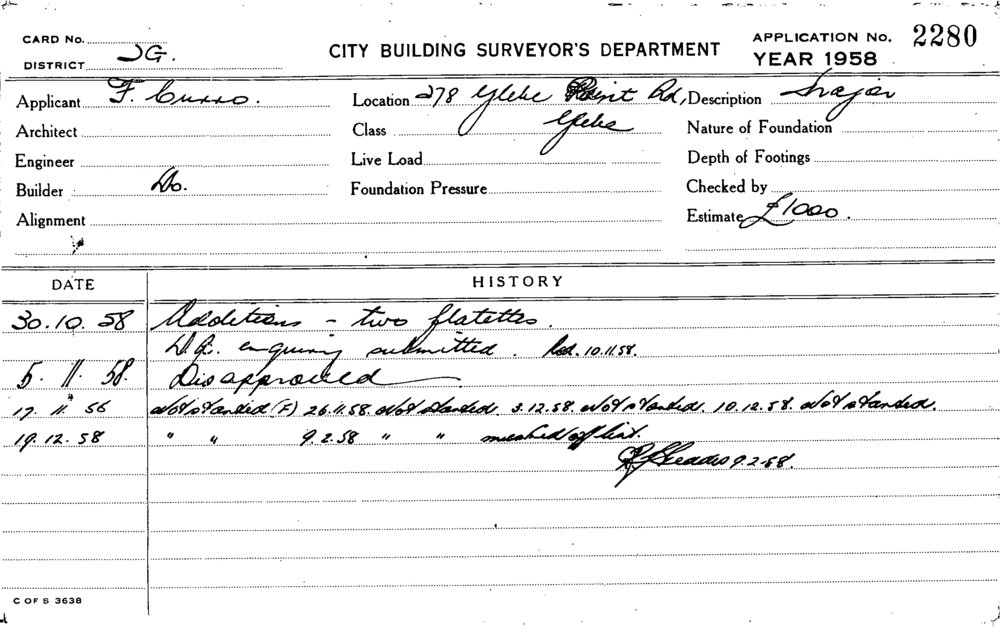 CARD No.
DISTRICT JG.
CITY BUILDING SURVEYOR'S DEPARTMENT
APPLICATION No. 2280
YEAR 1958
Applicant F. Curro.
Location 278 Glebe Point Rd, Glebe
Description
Architect
Class
Nature of Foundation
Engineer
Live Load
Depth of Footings
Builder Do.
Foundation Pressure
Checked by
Alignment
Estimate £1000.
DATE HISTORY
30.10.58 Additions - two flatettes.
enquiry submitted. Rec. 10.11.58.
5.11.58. Disapproved
17.11.56 Not started (F) 26.11.58. Not started. 3.12.58. Not started. 10.12.58. Not started.
19.12.58 " " 9.2.58 " " marked off list.
9.2.58.
C OF S 3638